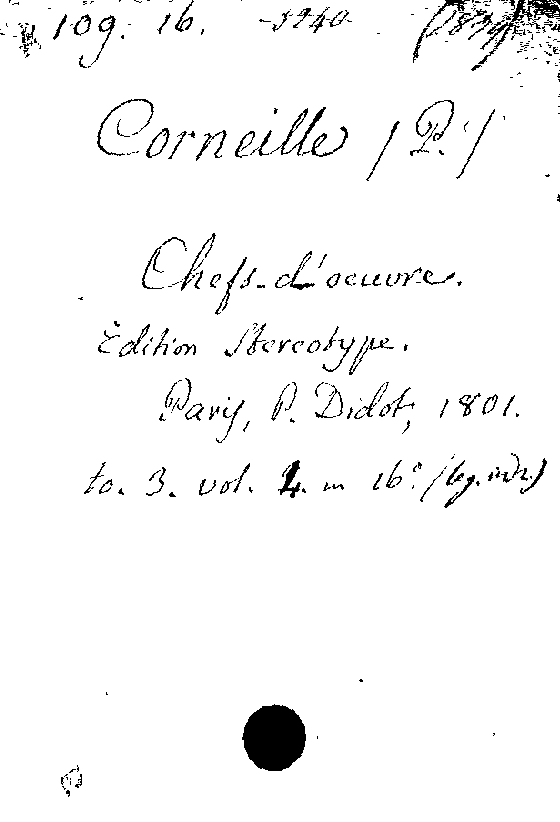 109. 16. -5240-
Corneille /P./
Chefs-d'oeuvre.
Edition Stereotype.
Paris, P. Didot, 1801.
to. 3. vol. 4. in 16° (leg. in